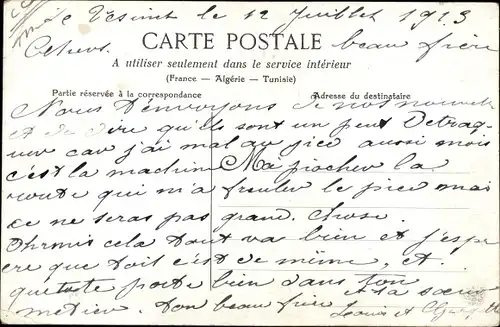 le Vesinet le 12 Juillet 1913
Chers beau frère
CARTE POSTALE
A utiliser seulement dans le service intérieur
(France — Algérie — Tunisie)
Partie réservée à la correspondance
Adresse du destinataire
Nous t'envoyons de nos nouvelles
et de dire qu'ils sont un peut Detraq
car j'ai mal au pice aussi mois
c'est la machine Ma piocher la
route qui m'a fouler le pice mai
ce ne seras pas grand chose
Ohrmis cela tout va bien et j'esp
ere que toit c'est de même, et
que tote porte bien dans ton
metier. et ta sœur
Ton beau frère Louis et